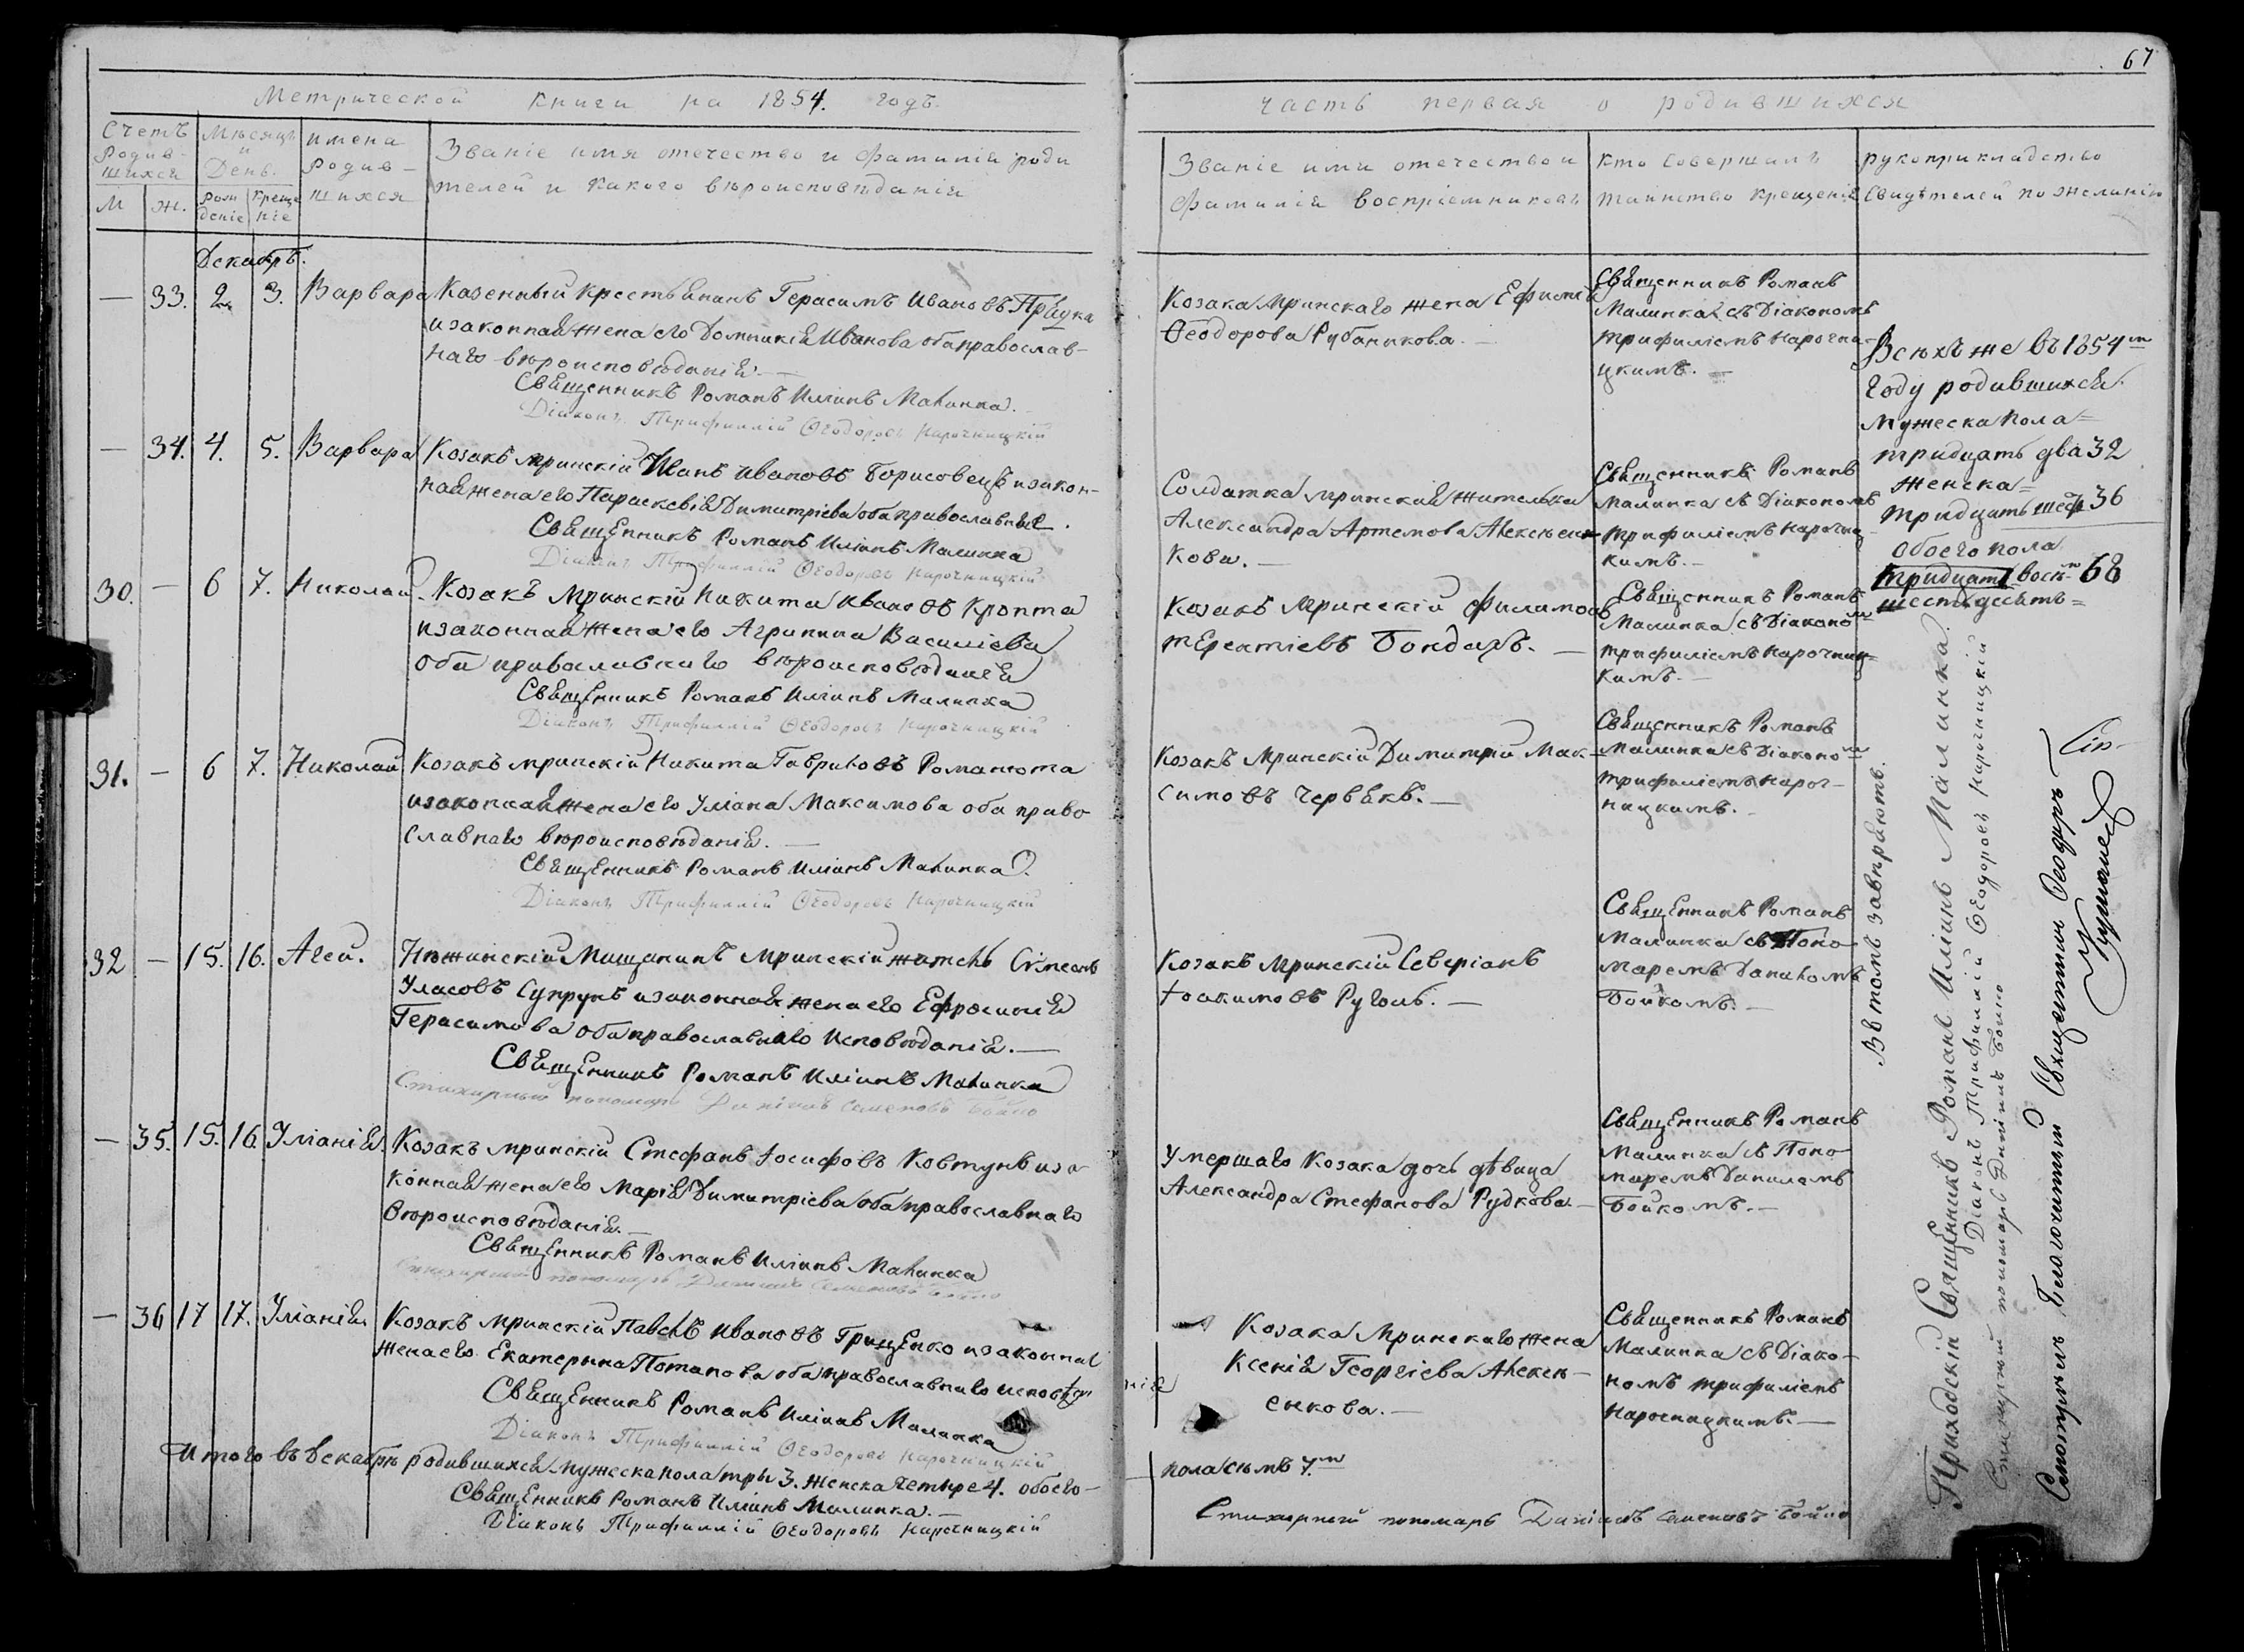 67
Метрической книги на 1854. годъ.
часть первая о родившихся
Счетъ родив-шихся
М ж.
Мѣсяцъ и День.
рождѣніе крещеніе
имена родив-шихся
Званіе имя отечество и фамилія роди
телей и какого вѣроисповѣданія
Званіе имя отечество и
фамилія воспріемниковъ
кто совершалъ
таинство крещенія
рукоприкладство
свидѣтелей по желанію
Декабрь.
— 33. 2. 3. Варвара
Казенный крестьянинъ Герасимъ Ивановъ
изаконная жена его Домникія Иванова оба православ-
наго вѣроисповѣданія. —
Священникъ Романъ Иліинъ Малинка.
Діаконъ Трифиллій Ѳеодоровъ Нарочницкій
Козака мринскаго жена Ефимія
Ѳеодорова Рубаникова. —
Священникъ Романъ
Малинка съ Діакономъ
трифиліемъ нарочни-
цкимъ. —
— 34. 4. 5. Варвара
Козакъ мринскій Иванъ Ивановъ Борисовецъ изакон-
ная жена его Параскевія Димитріева оба православныя.
Священникъ Романъ Иліинъ Малинка
Діаконъ Трифиллій Ѳеодоровъ Нарочницкій
Солдатка мринская жителька
Александра Артемова Алексѣен-
кова. —
Священникъ Романъ
Малинка съ Діакономъ
трифиліемъ нарочни
кимъ. —
30. — 6 7. Николай.
Козакъ мринскій Никита Ивановъ Кропта
изаконная жена его Агрипина Василіева
оба православнаго вѣроисповѣданія
Священникъ Романъ Иліинъ Малинка
Діаконъ Трифиллій Ѳеодоровъ Нарочницкій
Козакъ мринскій филимонъ
терентіевъ Бондарь. —
Священникъ Романъ
Малинка съ Діакономъ
трифиліемъ нарочниц-
кимъ. —
31. — 6 7. Николай
Козакъ мринскій Никита Гавриловъ Романюта
изаконная жена его Уліана Максимова оба право
славнаго вѣроисповѣданія. —
Священникъ Романъ Иліинъ Малинка.
Діаконъ Трифиллій Ѳеодоровъ Нарочницкій
Козакъ мринскій Димитрій Мак-
симовъ Червякъ. —
Священникъ Романъ
Малинка съ Діакономъ
трифиліемъ нароч-
ницкимъ.
32 — 15. 16. Агей.
Нѣжинскій Мищанинъ мринскій житель Симеонъ
Уласовъ Супрунъ изаконная жена его Ефросинія
Герасимова оба православнаго исповѣданія. —
Священникъ Романъ Иліинъ Малинка
Стихарный пономарь Даніилъ Семеновъ Бойко
Козакъ мринскій Северіанъ
Іоакимовъ Руголь. —
Священникъ Романъ
Малинка съ Поно-
маремъ Даниломъ
Бойкомъ. —
— 35. 15. 16 Уліанія.
Козакъ мринскій Стефанъ Іосифовъ Ковтунъ иза-
конная жена его Марія Димитріева оба православнаго
вѣроисповѣданія. —
Священникъ Романъ Иліинъ Малинка
Стихарный пономарь Даніилъ Семеновъ Бойко
Умершаго козака дочь дѣвица
Александра Стефанова Рудкова. —
Священникъ Романъ
Малинка съ Поно
маремъ Даниломъ
Бойкомъ. —
— 36 17 17. Уліанія
Козакъ мринскій Павелъ Ивановъ Грищенко изаконная
жена его Екатерына Потапова оба православнаго исповѣда
нія
Священникъ Романъ Иліинъ Малинка
Діаконъ Трифиллій Ѳеодоровъ Нарочницкій
Козака мринскаго жена
Ксенія Георгіева Алексѣ-
енкова. —
Священникъ Романъ
Малинка съ Діако-
номъ трифиліемъ
нарочницкимъ. —
Итого въ декабрѣ родившихся мужеска пола тры 3. женска четыре 4. обоего —
пола семь 7.
Священникъ Романъ Иліинъ Малинка. —
Діаконъ Трифиллій Ѳеодоровъ Нарочницкій
Стихарный пономарь Даніилъ Семеновъ Бойко
Всѣхъ же въ 1854м
году родившихся.
мужеска пола =
тридцать два 32
женска =
тридцать шесть 36
обоего пола
тридцать восемь 68
шестдесять =
В томъ завѣряютъ.
Приходскій Священникъ Романъ Иліинъ Малинка.
Діаконъ Трифиллій Ѳеодоровъ Нарочницкій
Стихарный пономарь Даніилъ Бойко
Смотрѣлъ Благочинный Священникъ Ѳеодоръ